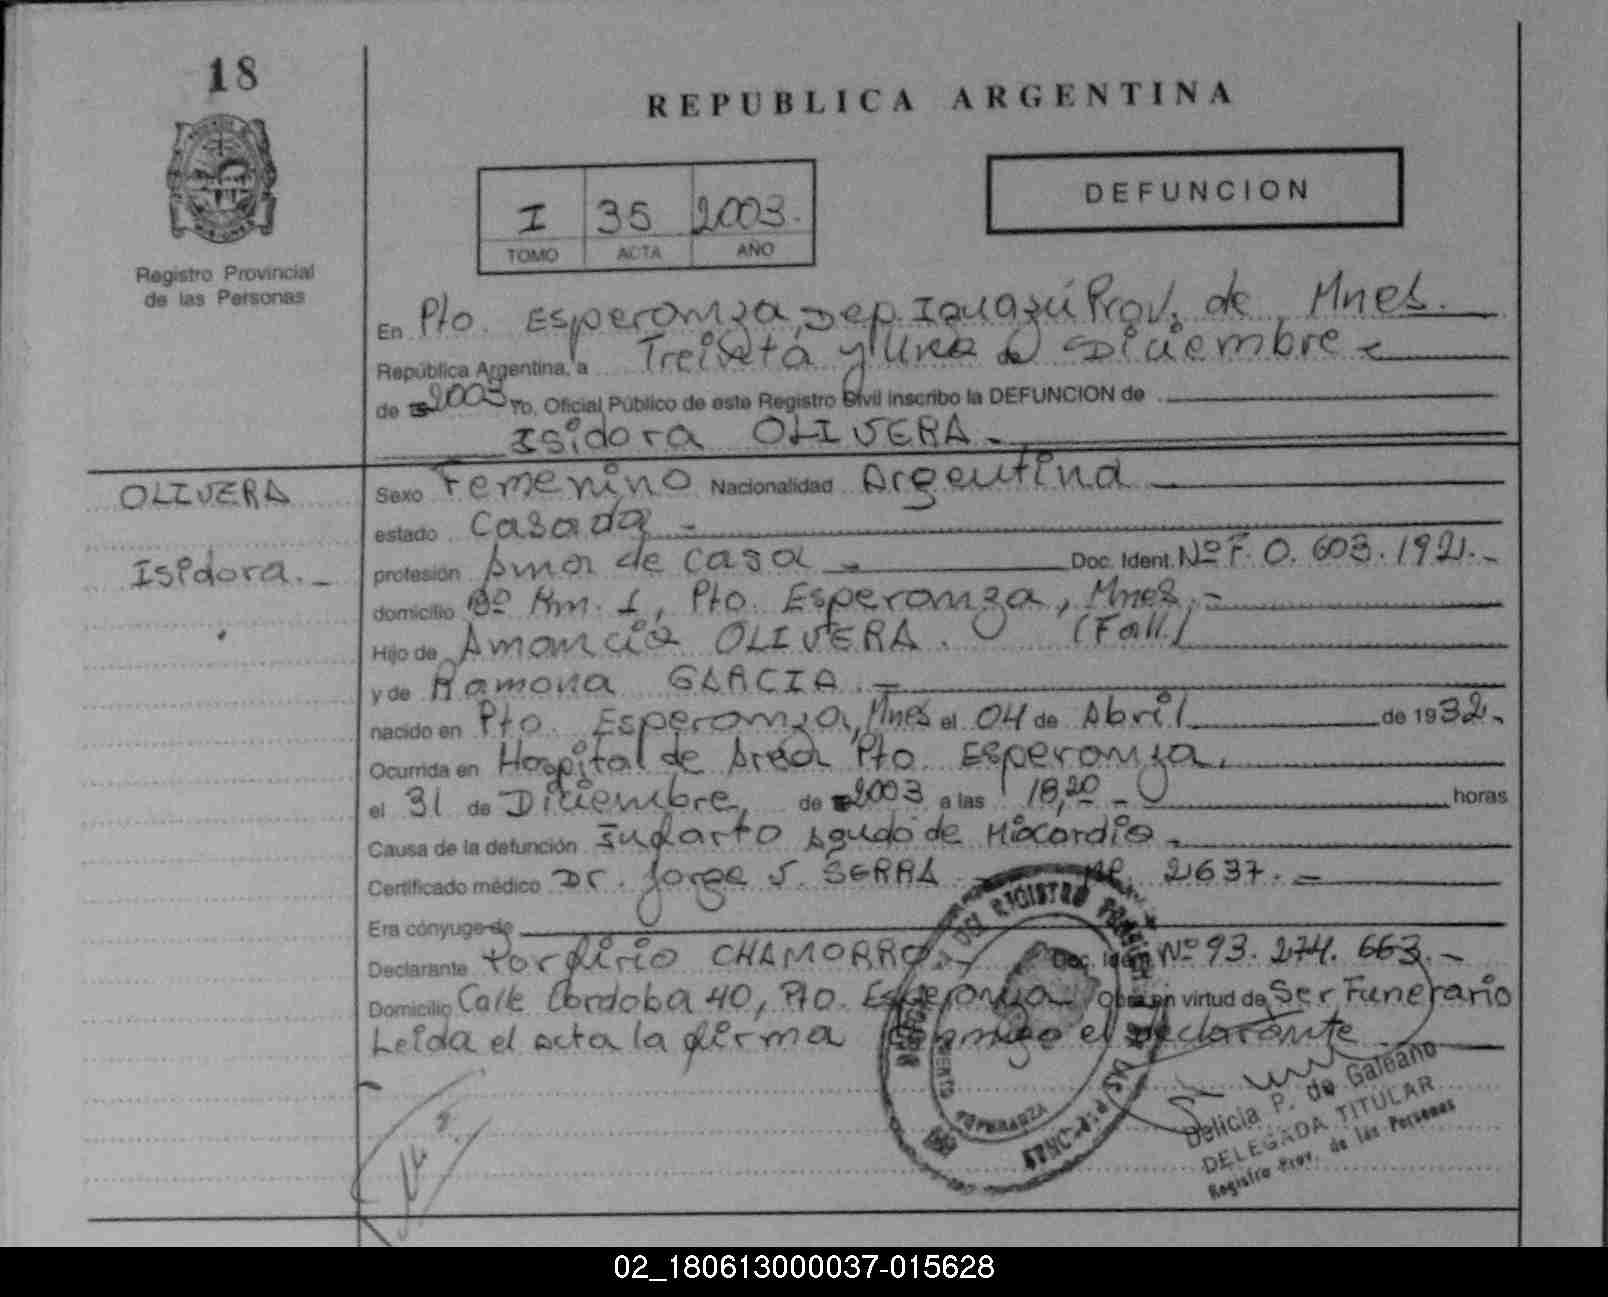 18
REPUBLICA ARGENTINA
I 35 2003.
TOMO ACTA AÑO
DEFUNCION
Registro Provincial
de las Personas
En Pto. Esperanza, Dep. Iguazú Prov. de Mnes.
República Argentina, a Treinta y Uno de Diciembre
de 2003 Yo, Oficial Público de este Registro Civil inscribo la DEFUNCION de
Isidora OLIVERA.
OLIVERA
Isidora.
Sexo Femenino Nacionalidad Argentina
estado Casada
profesión Ama de casa Doc. Ident. Nº F. 0.603.192.
domicilio Bº Km. 1, Pto. Esperanza, Mnes.
Hijo de Amancio OLIVERA. (Fall.)
y de Ramona GARCIA.
nacido en Pto. Esperanza, Mnes el 04 de Abril de 1932.
Ocurrida en Hospital de Area Pto. Esperanza.
el 31 de Diciembre, de 2003 a las 18,20 horas
Causa de la defunción Infarto Agudo de Miocardio.
Certificado médico Dr. Jorge S. SERRA MP. 2637.
Era cónyuge de
Declarante Porfirio CHAMORRO. Doc. Ident. Nº 93.274.663.
Domicilio Calle Cordoba 40, Pto. Esperanza Obra en virtud de Ser Funerario
Leida el acta la firma conmigo el declarante
DEL REGISTRO
ESPERANZA
Delicia P. de Galeano
DELEGADA TITULAR
Registro Prov. de las Personas
02_180613000037-015628